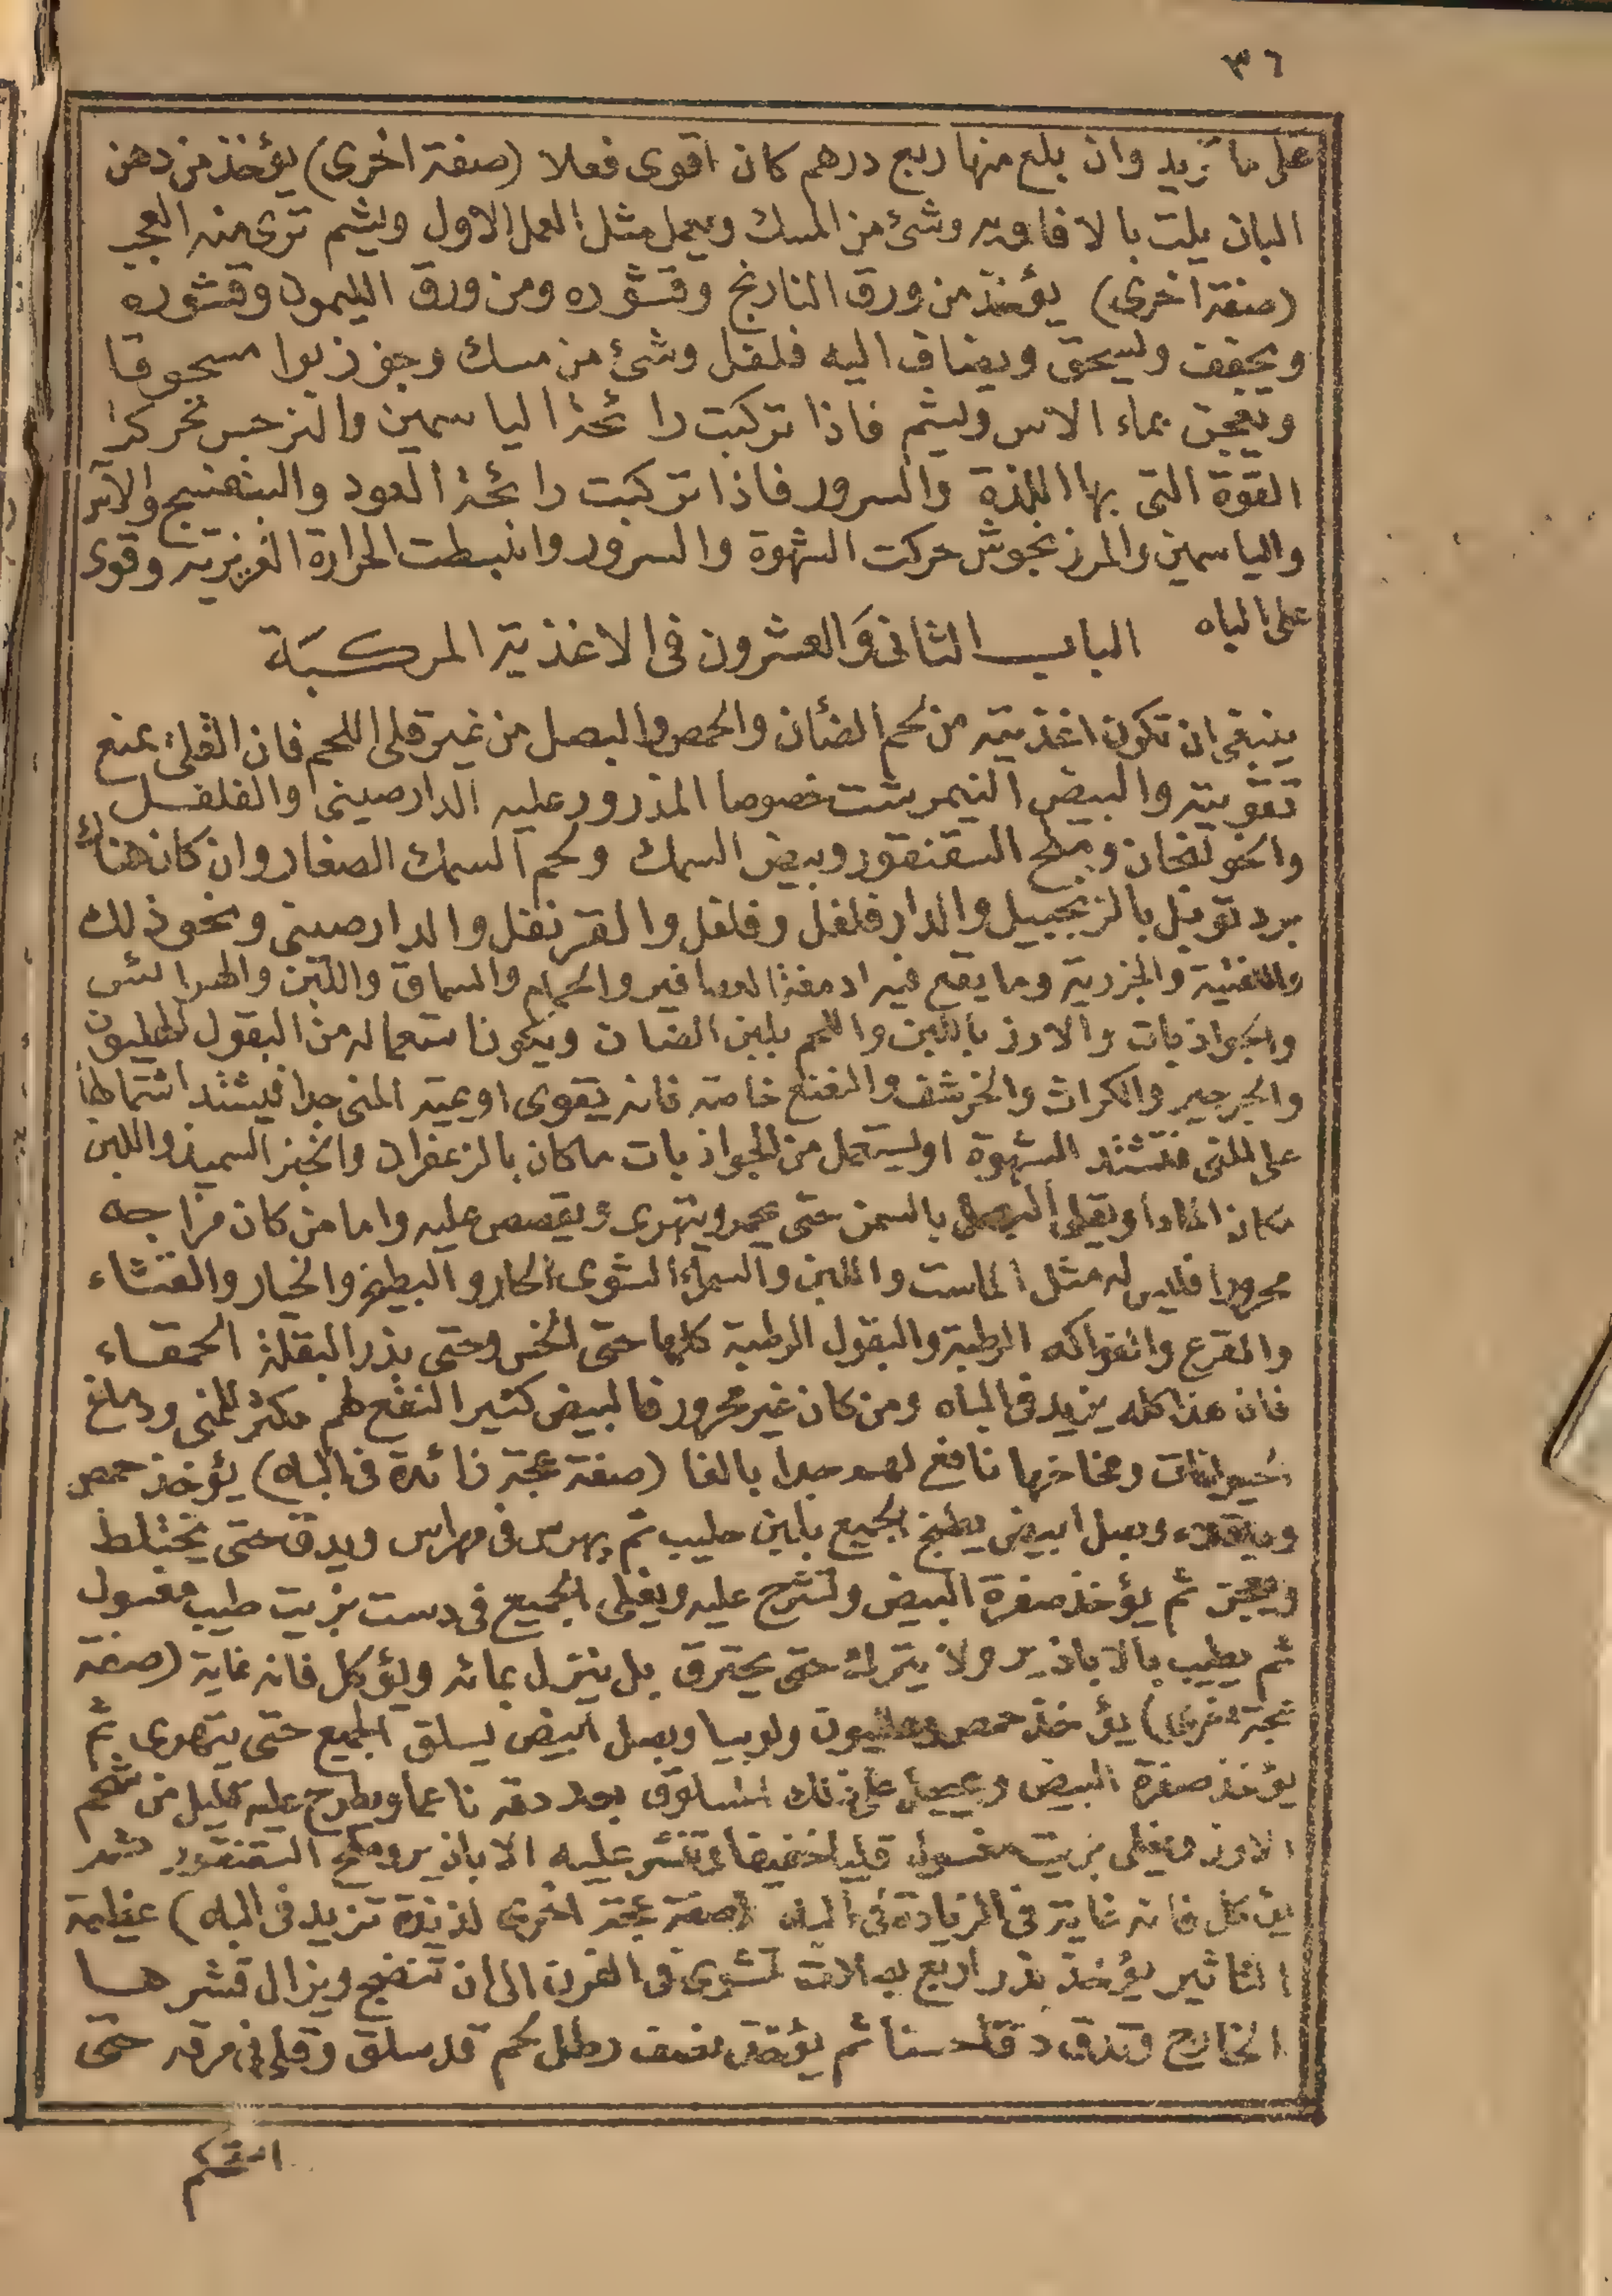 ٣٦
على ما تريد وان بلع منها ربع درهم كان اقوى فعلا (صفة اخرى) يؤخذ من دهن
البان يلت بالافاويه وشئ من المسك ويعمل مثل العمل الاول ويشم ترى منه العجب
(صفة اخرى) يؤخذ من ورق النارنج وقشوره ومن ورق الليمون وقشوره
ويجفف ويسحق ويضاف اليه فلفل وشئ من مسك وجوز بوا مسحوقا
ويعجن بماء الاس ويشم فاذا تركبت رائحة الياسمين والنرجس تحركت
القوة التى بها اللذة والسرور فاذا تركبت رائحة العود والبنفسج والآس
والياسمين والمرزنجوش حركت الشهوة والسرور وانبسطت الحرارة الغريزية وقوى
على الباه الباب الثانى والعشرون فى الاغذية المركبة
ينبغى ان تكون اغذيته من لحم الضأن والحمص والبصل من غير قلى اللحم فان القلى يمنع
تقويته والبيض النيمرشت خصوصا المذرور عليه الدارصينى والفلفل
والخولنجان وملح السقنقور وبيض السمك ولحم السمك الصغار وان كان هناك
برد توبل بالزنجبيل والدارفلفل وفلفل والقرنفل والدارصينى ونحو ذلك
واللفتية والجزرية وما يقع فيه ادمغة العصافير والحمام والسماق واللبن والهرائس
والجواذبات والارز باللبن واللحم بلبن الضان ويكون استعماله من البقول الهليون
والجرجير والكراث والخرشف والنعنع خاصة فانه يقوى اوعية المنى جدا فيشتد اشتمالها
على المنى فتشتد الشهوة اويستعمل من الجواذبات ماكان بالزعفران والخبز السميذ واللبن
مكان الماء او يقلى البصل بالسمن حتى يحمر ويتهرى ويقصص عليه واما من كان مزاجه
محرورا فليس له مثل الماست واللبن والسمك الشوى الحار والبطيخ والخيار والقثاء
والقرع والفواكه الرطبة والبقول الرطبة كلها حتى الخس وحتى بذر البقلة الحمقاء
فان هذا كله يزيد فى الباه ومن كان غير محرور فالبيض كثير النفع لهم مكثر للمنى ودماغ
الحيوانات ومخاخها نافع لهم جدا بالغا (صفة عجة زائدة فى الباه) يؤخذ حمص
وباقلاء وبصل ابيض يطبخ الجميع بلبن حليب ثم يهرس فى مهراس ويدق حتى يختلط
ويعجن ثم يؤخذ صفرة البيض وتشرح عليه ويغلى الجميع فى دست بزيت طيب مغسول
ثم يطيب بالابازير ولا يترك حتى يحترق بل ينزل بمائه ويؤكل فانه غاية (صفة
عجة اخرى) يؤخذ حمص وهليون ولوبيا وبصل ابيض يسلق الجميع حتى يتهرى ثم
يؤخذ صفرة البيض ويجعل على ذلك المسلوق بعد دقه ناعما ويطرح عليه قليل من شحم
الاوز ويغلى بزيت مغسول قليا خفيفا وتنثر عليه الابازير وملح السقنقور ثم
يؤكل فانه غاية فى الزيادة فى الباه (صفة عجة اخرى لذيذة تزيد فى الباه) عظيمة
التاثير يؤخذ قدر اربع بصلات تشوى فى الفرن الى ان تنضج ويزال قشرها
الخارج وتدق دقا حسنا ثم يؤخذ نصف رطل لحم قد سلق وقلى فى مرقه حتى